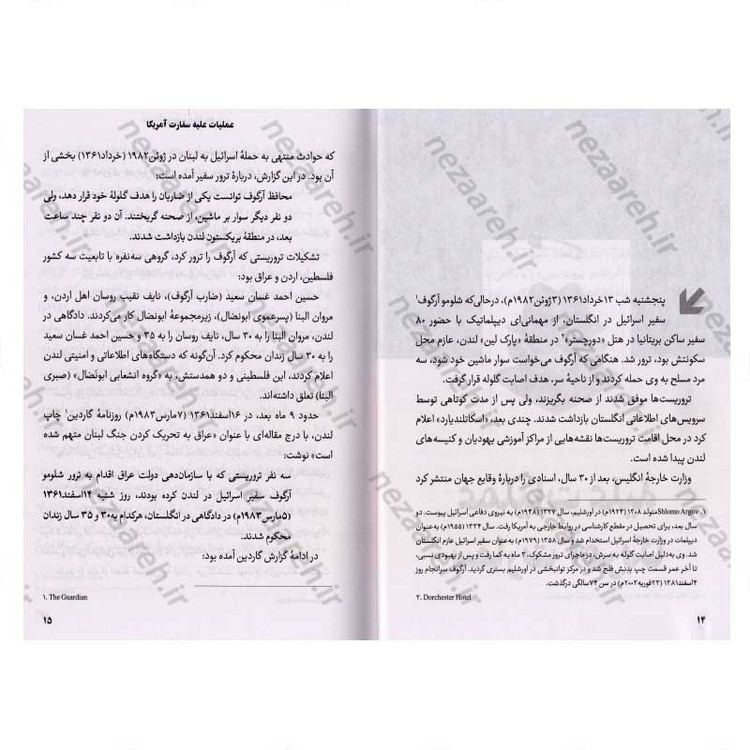 پنجشنبه شب ۱۳خرداد۱۳۶۱ (۳ژوئن۱۹۸۲م)، درحالی‌که شلومو آرگوف۱
سفیر اسرائیل در انگلستان، از مهمانی‌ای دیپلماتیک با حضور ۸۰
سفیر ساکن بریتانیا در هتل «دورچستر»۲ در منطقهٔ «پارک لین» لندن، عازم محل
سکونتش بود، ترور شد. هنگامی که آرگوف می‌خواست سوار ماشین خود شود، سه
مرد مسلح به وی حمله کردند و از ناحیهٔ سر، هدف اصابت گلوله قرار گرفت.
تروریست‌ها موفق شدند از صحنه بگریزند، ولی پس از مدت کوتاهی توسط
سرویس‌های اطلاعاتی انگلستان بازداشت شدند. چندی بعد، «اسکاتلندیارد» اعلام
کرد در محل اقامت تروریست‌ها نقشه‌هایی از مراکز آموزشی یهودیان و کنیسه‌های
لندن پیدا شده است.
وزارت خارجهٔ انگلیس، بعد از ۳۰ سال، اسنادی را دربارهٔ وقایع جهان منتشر کرد
۱. Shlomo Argov متولد ۱۳۰۸ (۱۹۲۴م) در اورشلیم، سال ۱۳۲۷ (۱۹۴۸م) به نیروی دفاعی اسرائیل پیوست. دو
سال بعد، برای تحصیل در مقطع کارشناسی در روابط خارجی به آمریکا رفت. سال ۱۳۳۴ (۱۹۵۵م) به‌عنوان
دیپلمات در وزارت خارجهٔ اسرائیل استخدام شد و سال ۱۳۵۸ (۱۹۷۹م) به‌عنوان سفیر اسرائیل عازم انگلستان
شد. وی به‌دلیل اصابت گلوله به سرش، درماجرای ترور مشکوک، ۳ ماه به کما رفت و پس از بهبودی نسبی،
تا آخر عمر قسمت چپ بدنش فلج شد و در مرکز توانبخشی در اورشلیم بستری گردید. آرگوف سرانجام روز
۴اسفند۱۳۸۱ (۲۳فوریه۲۰۰۳م) در سن ۷۴سالگی درگذشت.
۲. Dorchester Hotel
۱۴
عملیات علیه سفارت آمریکا
که حوادث منتهی به حملهٔ اسرائیل به لبنان در ژوئن۱۹۸۲ (خرداد۱۳۶۱) بخشی از
آن بود. در این گزارش، دربارهٔ ترور سفیر آمده است:
محافظ آرگوف توانست یکی از ضاربان را هدف گلوله خود قرار دهد، ولی
دو نفر دیگر سوار بر ماشین، از صحنه گریختند. آن دو نفر چند ساعت
بعد، در منطقهٔ بریکستون لندن بازداشت شدند.
تشکیلات تروریستی که آرگوف را ترور کرد، گروهی سه‌نفره با تابعیت سه کشور
فلسطین، اردن و عراق بود:
حسین احمد غسان سعید (ضارب آرگوف)، نایف نقیب روسان اهل اردن، و
مروان البنا (پسرعموی ابونضال)، زیرمجموعهٔ ابونضال کار می‌کردند. دادگاهی در
لندن، مروان البنا را به ۳۰ سال، نایف روسان را به ۳۵ و حسین احمد غسان سعید
را به ۳۰ سال زندان محکوم کرد. آن‌گونه که دستگاه‌های اطلاعاتی و امنیتی لندن
اعلام کردند، این فلسطینی و دو همدستش، به «گروه انشعابی ابونضال» (صبری
البنا) تعلق داشته‌اند.
حدود ۹ ماه بعد، در ۱۶اسفند۱۳۶۱ (۷مارس۱۹۸۳م) روزنامهٔ گاردین۱ چاپ
لندن، با درج مقاله‌ای با عنوان «عراق به تحریک کردن جنگ لبنان متهم شده
است» نوشت:
سه نفر تروریستی که با سازمان‌دهی دولت عراق اقدام به ترور شلومو
آرگوف سفیر اسرائیل در لندن کرده بودند، روز شنبه ۱۴اسفند۱۳۶۱
(۵مارس۱۹۸۳م) در دادگاهی در انگلستان، هرکدام به۳۰ و ۳۵ سال زندان
محکوم شدند.
در ادامهٔ گزارش گاردین آمده بود:
۱. The Guardian
۱۵
nezaareh.ir